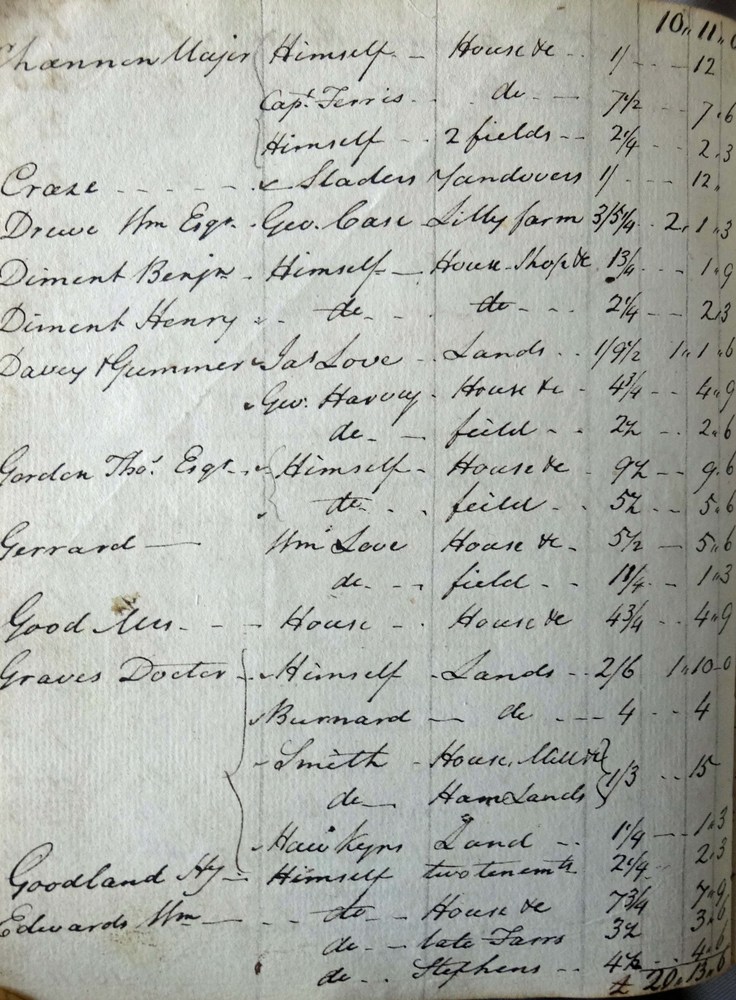 10,, 11,, 0
Channon Major Himself - House &c - 1/ - - 12
Capt. Ferris - do - 7 1/2 - 7,,6
Himself - 2 fields - 2 1/4 - 2,,3
Craze - - - - Sladers Yandovers 1/ - - 12,,
Drewe Wm Esqr. Geo. Case Lilly farm 3/5 1/4 - 2,, 1,,3
Diment Benjn - Himself - House Shop &c 1 3/4 - - 1,,9
Diment Henry - do - do - - 2 1/4 - - 2,,3
Davey & Gummer Jas Love - Lands - - 1/9 1/2 1,,1,,6
Geo. Harvey - House &c - 4 3/4 - - 4,,9
do - feild - - 2 1/2 - - 2,,6
Gordon Thos. Esqr. - Himself - House &c - 9 1/2 - - 9,,6
do - - feild - - 5 1/2 - - 5,,6
Gerrard - Wm Love House &c - 5 1/2 - - 5,,6
do - - field - - 1 1/4 - - 1,,3
Good Mrs. - - House - - House &c 4 3/4 - - 4,,9
Graves Docter - Himself - Lands - - 2/6 1,,10-0
Burnard - do - - 4 - - 4
Smith - House, Mill &c } 1/3 - - 15
do - Ham Lands
Hawkyns Land - - 1 1/4 - - 1,,3
Goodland Hy - Himself two tenemts 2 1/4 - - 2,,3
Edwards Wm - - do - - House &c 7 3/4 7,,9
do - - late Farrs 3 1/2 3,,6
do - - Stephens - - 4 1/2 - - 4,,6
£ 20,,13,,6